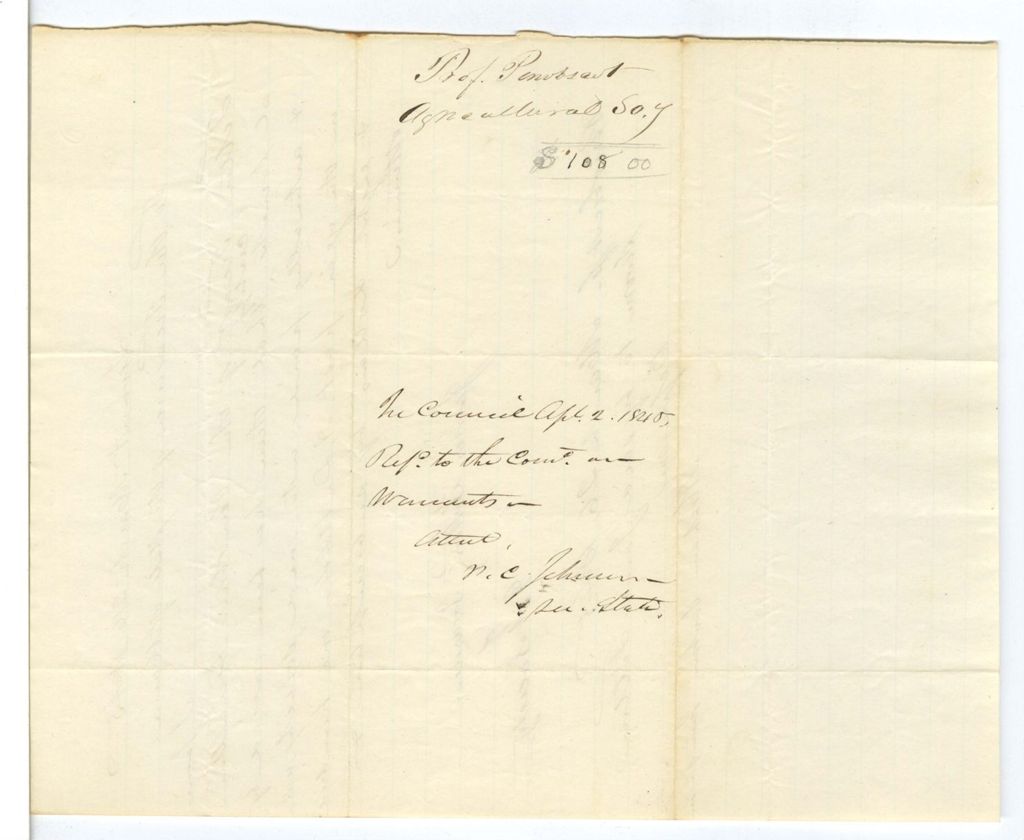 Prof. Penobscot
Agricultural So.y
$108 00
In Council Apl. 2. 1840,
Refd. to the Come. on
Warrants —
Attest,
P. C. Johnson —
Sec. State.